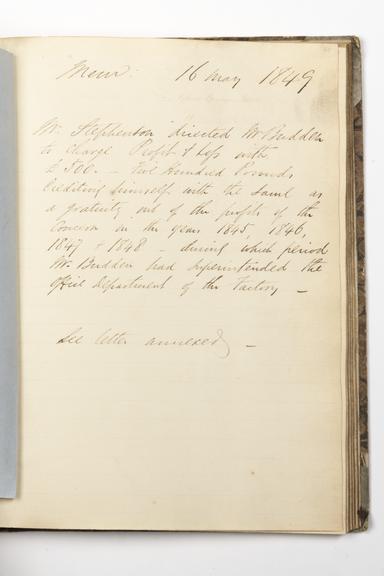 Mem: 16 May 1849
Mr. Stephenson directed Mr Budden
to charge Profit & Loss with
£500. — Five Hundred Pounds,
Crediting himself with the same as
a gratuity out of the profits of the
Concern in the years 1845, 1846,
1847 & 1848 — during which period
Mr. Budden had superintended the
Office Department of the Factory —
See letter annexed —